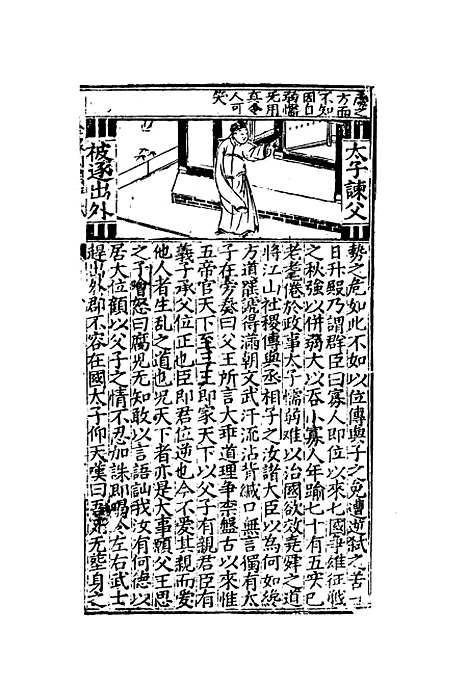 太子諫父
被逐出外
勢之危如此不如以位傳與子之免遭逆弑之苦一
日升殿乃謂群臣曰寡人即位以來七國爭雄征戰
之秋強以併弱大以吞小寡人年踰七十有五矣已
老耄倦於政事太子懦弱难以治國欲效堯舜之道
將江山社稷傳與丞相子之汝諸大臣以為何如終
方道罷諕得滿朝文武汗流沾背緘口無言獨有太
子在旁奏曰父王所言大乖道理爭李盤古以來惟
五帝官天下至三王即家天下以父子有親君臣有
義子承父位正也臣即君位逆也今不爱其親而爱
他人者生乱之道也况天下者亦是大事願父王思
之子噲怒曰腐児无知敢以言語訕我汝有何德以
居大位顧以父子之情不忍加誅即喝令左右武士
趕出外郡不容在國太子仰天嘆曰吾弟无堅身之